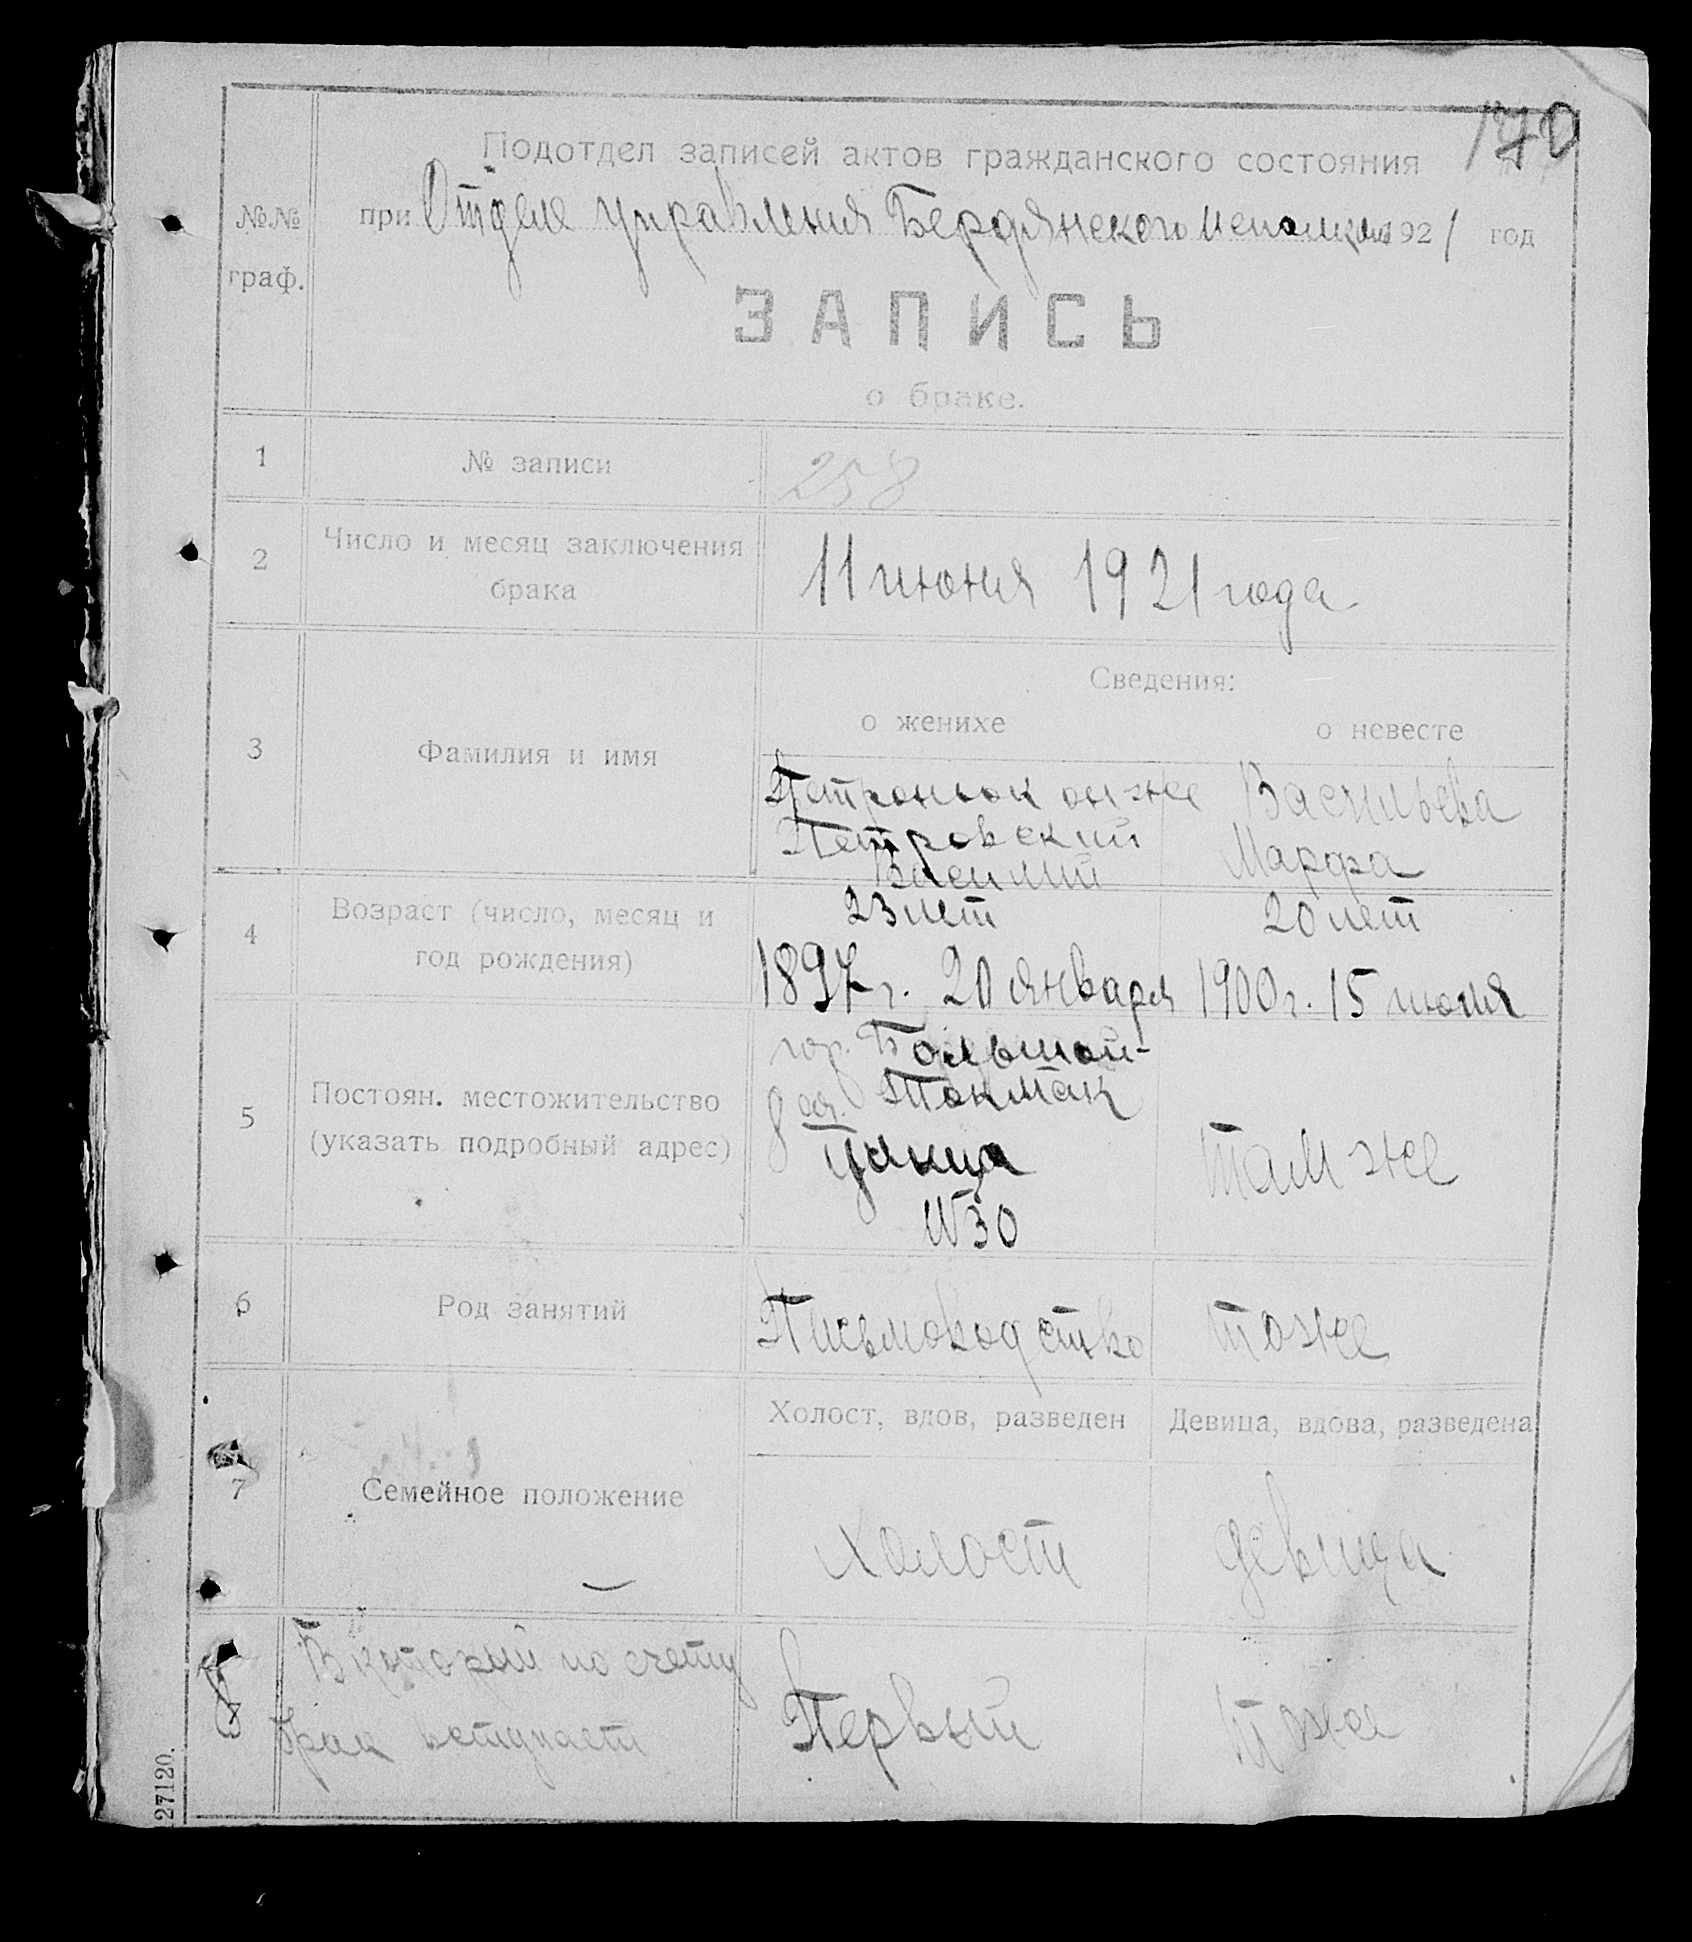 170
Подотдел записей актов гражданского состояния
№№ граф.
при Отделе управления Бердянского Исполкома 1921 год
ЗАПИСЬ
о браке.
1 № записи 258
2 Число и месяц заключения брака 11 июня 1921 года
Сведения:
о женихе о невесте
3 Фамилия и имя
Петронюк он же Васильева
Петровский Марфа
Василий
4 Возраст (число, месяц и год рождения)
23 лет 20 лет
1897 г. 20 января 1900 г. 15 июня
5 Постоян. местожительство (указать подробный адрес)
гор. Большой-
Токмак
8 ая.
улица там же
№30
6 Род занятий Письмоводство тоже
Холост, вдов, разведен Девица, вдова, разведена
7 Семейное положение
холост девица
8 В который по счету
брак вступает Первый тоже
27120.